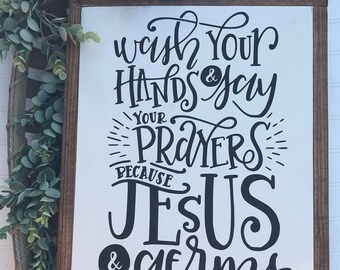 wash YOUR
HANDS & say
YOUR
PRAYERS
BECAUSE
JESUS
& germs